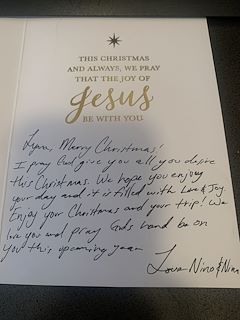 THIS CHRISTMAS
AND ALWAYS, WE PRAY
THAT THE JOY OF
Jesus
BE WITH YOU
Lynn, Merry Christmas!
I pray God give you all you desire
this Christmas. We hope you enjoy
your day and it is filled with Love & Joy.
Enjoy your Christmas and your trip! We
love you and pray Gods hand be on
you this upcoming year.
Love Nino & Nina